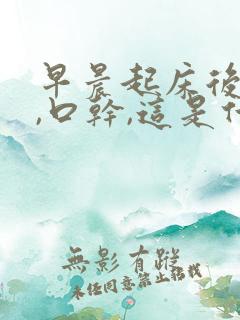 早晨起床後
,口幹,這是什
無影有蹤
未經同意禁止搭載